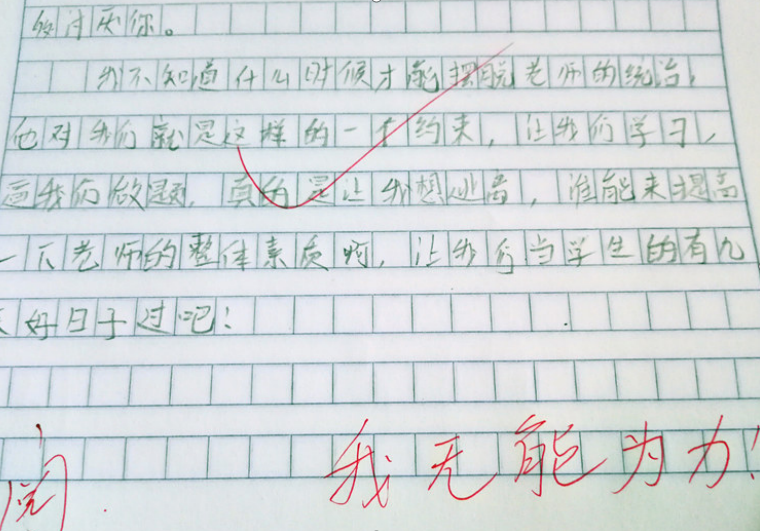 的讨厌你。
我不知道什么时候才能摆脱老师的统治，
他对我们就是这样的一本约束，让我们学习，
逼我们做题，真的是让我想逃离，谁能来提高
一下老师的整体素质啊，让我们当学生的有几
天好日子过吧！
阅
我无能为力！